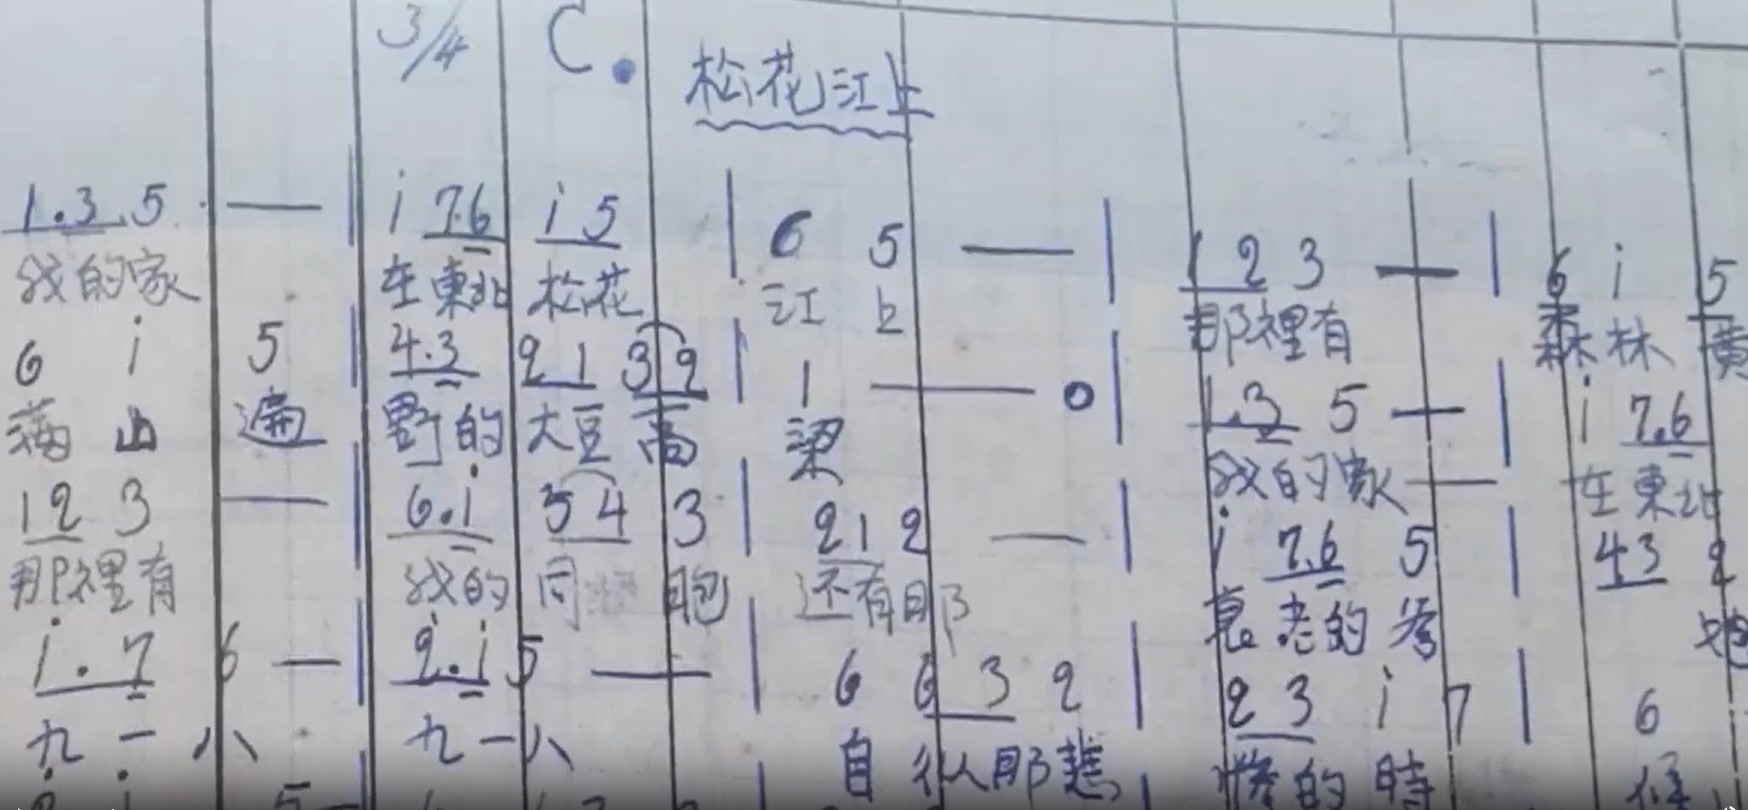 3/4 C. 松花江上
1.3 5 — | i 7.6 i 5 | 6 5 — | 1 2 3 — | 6 i 5
我的家 在東北 松花 江上 那裡有 森林 黄
6 i 5 | 4.3 2 1 3 2 | 1 — 0 | 1.3 5 — | i 7.6
满山遍 野的 大豆高 梁 我的家 — 在東北
1 2 3 — | 6.i 5 4 3 | 2 1 2 — | i 7.6 5 | 4 3 2
那裡有 我的同 胞 还有那 衰老的爷 她
i.7 6 — | 2.i 5 — | 6 6 3 2 | 2 3 i 7 | 6
九一八 九一八 自从那悲 惨的時 候